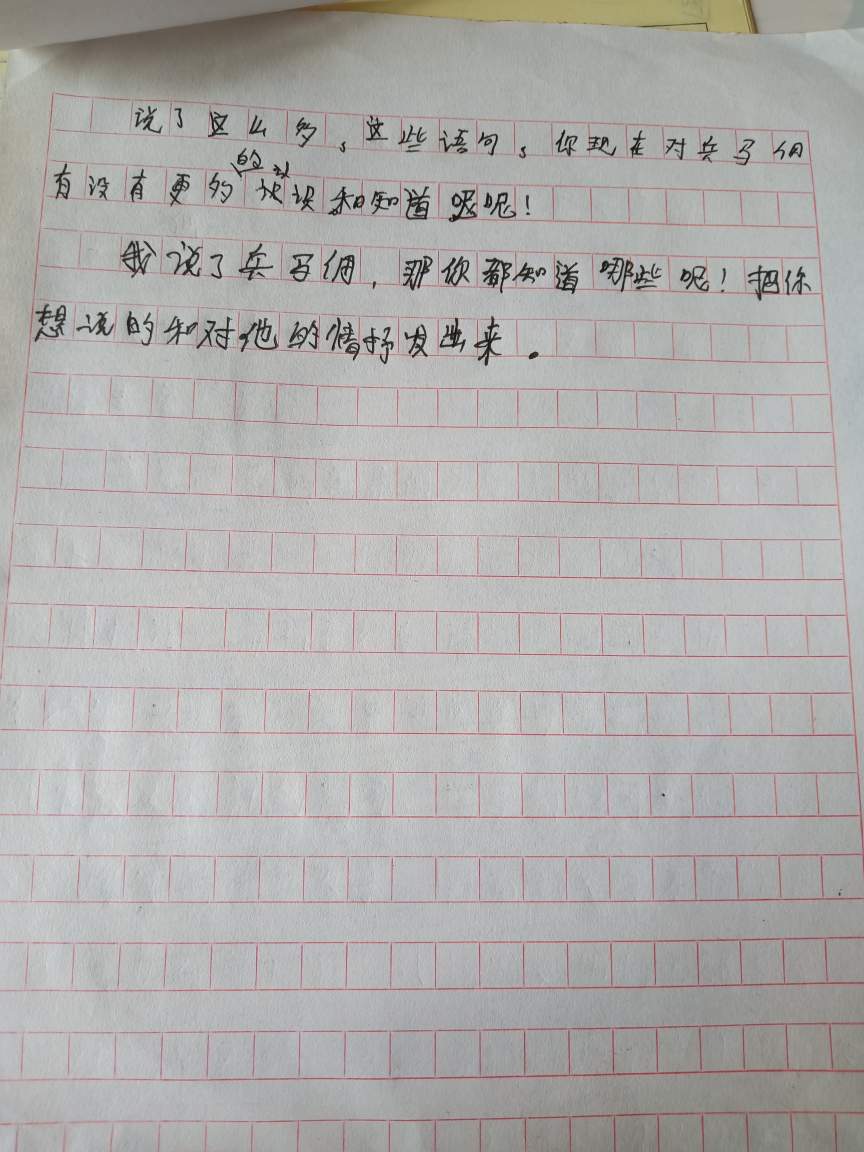 说了这么多、这些语句，你现在对兵马俑
有没有更多的认识和知道呢！
我说了兵马俑，那你都知道哪些呢！把你
想说的和对他的情抒发出来。